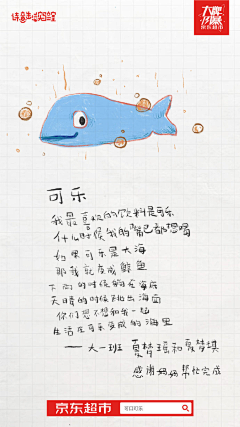 大牌秒杀
京东超市
可乐
我最喜欢的饮料是可乐
什么时候我的嘴巴都想喝
如果可乐是大海
那我就变成鲸鱼
下雨的时候躲在海底
天晴的时候跳出海面
你们想不想和我一起
生活在可乐变成的海里
——大一班 夏梦瑶和夏梦琪
感谢妈妈帮忙完成
京东超市